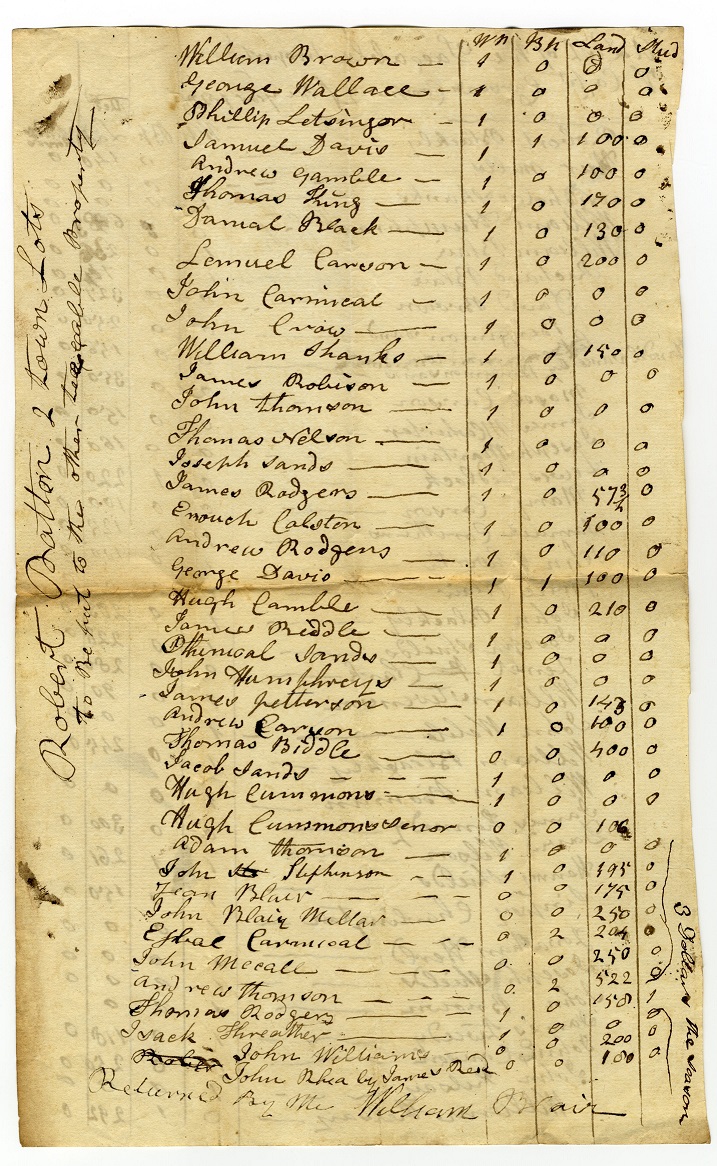 Wh Bh Land Stud
William Brown — 1 0 0 0
George Wallace — 1 0 0 0
Phillip Letsinger — 1 0 0 0
Samuel Davis — 1 1 100 0
Andrew Gamble — 1 0 100 0
Thomas King — 1 0 170 0
Danial Black — 1 0 130 0
Lemuel Carson — 1 0 200 0
John Carmical — 1 0 0 0
John Crow — 1 0 0 0
William Shanks — 1 0 150 0
James Robison — 1 0 0 0
John thomson — 1 0 0 0
Thomas Nelson — 1 0 0 0
Joseph Sands — 1 0 0 0
James Rodgers — 1 0 573 0
Enouch Calston — 1 0 100 0
Andrew Rodgers — 1 0 110 0
George Davis — 1 1 100 0
Hugh Camble — 1 0 210 0
James Biddle — 1 0 0 0
Phinical Sands — 1 0 0 0
John Humphreys — 1 0 0 0
James Petterson — 1 0 143 0
Andrew Earyon — 1 0 100 0
Thomas Biddle — 0 0 400 0
Jacob Sands — 1 0 0 0
Hugh Cummons — 1 0 0 0
Hugh Cummons Senor 0 0 106
Adam thomson — 1 0 0 0
John Stephinson — 1 0 395 0
Jean Blair — 0 0 175 0
John Blair Millar — 0 0 250 0
Esbal Carmical — 0 2 204 0
John Mccall — 0 0 250 0
Andrew thomson — 0 2 522 0
Thomas Rodgers — 1 0 158 1
Isack Threather — 1 0 0 0
John Williams 0 0 200 0
John Rhea by James Reed 0 0 180 0
Returned By Me William Blair
Robert Batton 2 town Lots
to Be put to the other taxable Property
3 Dollars the season